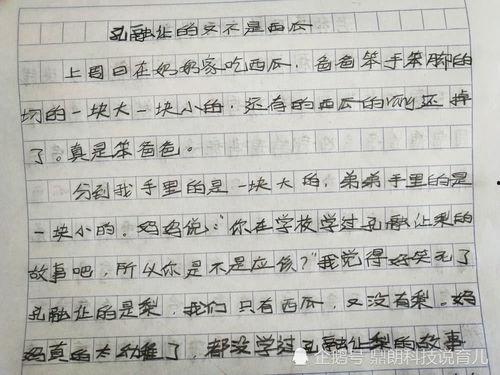 孔融让的又不是西瓜
上周日在奶奶家吃西瓜，爸爸笨手笨脚的
切的一块大一块小的，还有的西瓜的还掉
了。真是笨爸爸。
分到我手里的是一块大的，弟弟手里的是
一块小的。妈妈说：“你在学校学过孔融让梨的
故事吧，所以你是不是应该？”我觉得好笑死了
孔融让的是梨，我们只有西瓜，又没有梨。妈
妈真的太幼稚了，都没学过孔融让梨的故事
企鹅号 鼎朗科技说育儿